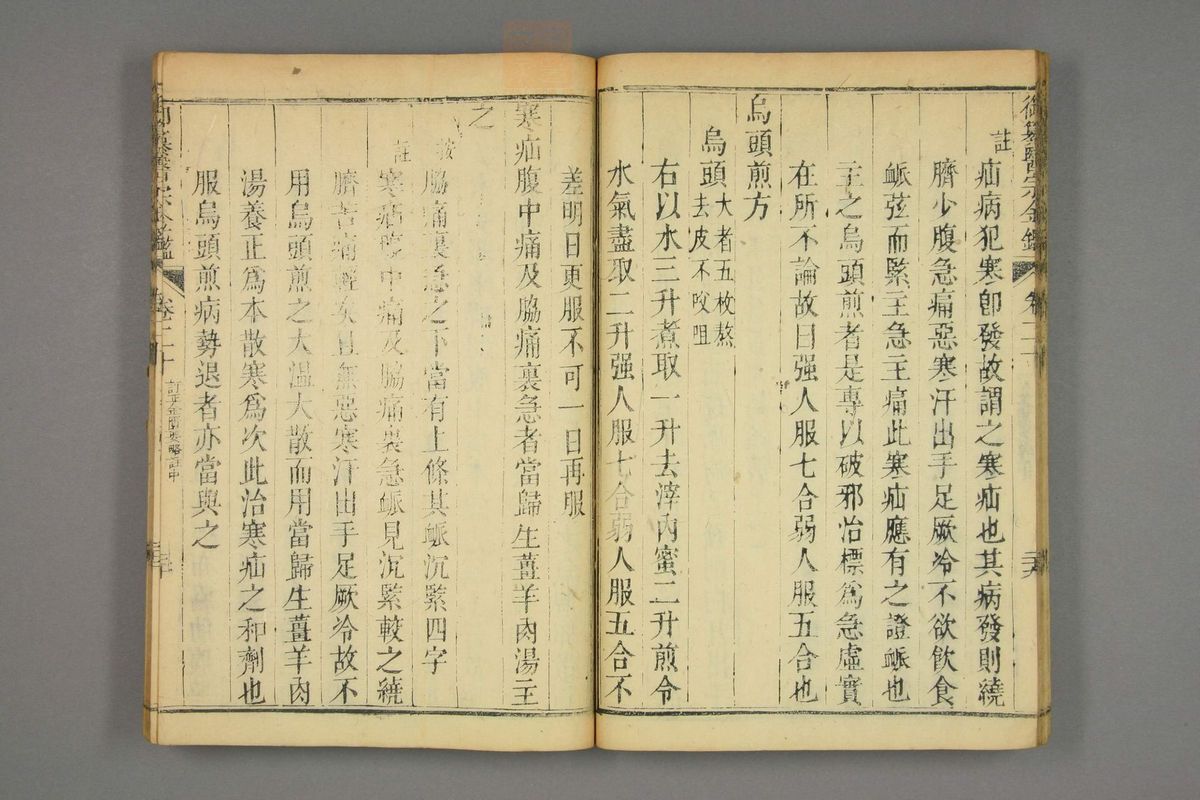 御纂醫宗金鑑 卷二十
註 疝病犯寒卽發故謂之寒疝也其病發則繞
臍少腹急痛惡寒汗出手足厥冷不欲飲食
脈弦而緊主急主痛此寒疝應有之證脈也
主之烏頭煎者是專以破邪治標爲急虛實
在所不論故曰强人服七合弱人服五合也
烏頭煎方
烏頭 大者五枚熬
去皮不㕮咀
右以水三升煮取一升去滓內蜜二升煎令
水氣盡取二升强人服七合弱人服五合不
差明日更服不可一日再服
寒疝腹中痛及脇痛裏急者當歸生薑羊肉湯主
之
按 脇痛裏急之下當有上條其脈沉緊四字
註 寒疝腹中痛及脇痛裏急脈見沉緊較之繞
臍苦痛輕矣且無惡寒汗出手足厥冷故不
用烏頭煎之大溫大散而用當歸生薑羊肉
湯養正爲本散寒爲次此治寒疝之和劑也
服烏頭煎病勢退者亦當與之
御纂醫宗金鑑 卷二十 訂正金匱要略註中